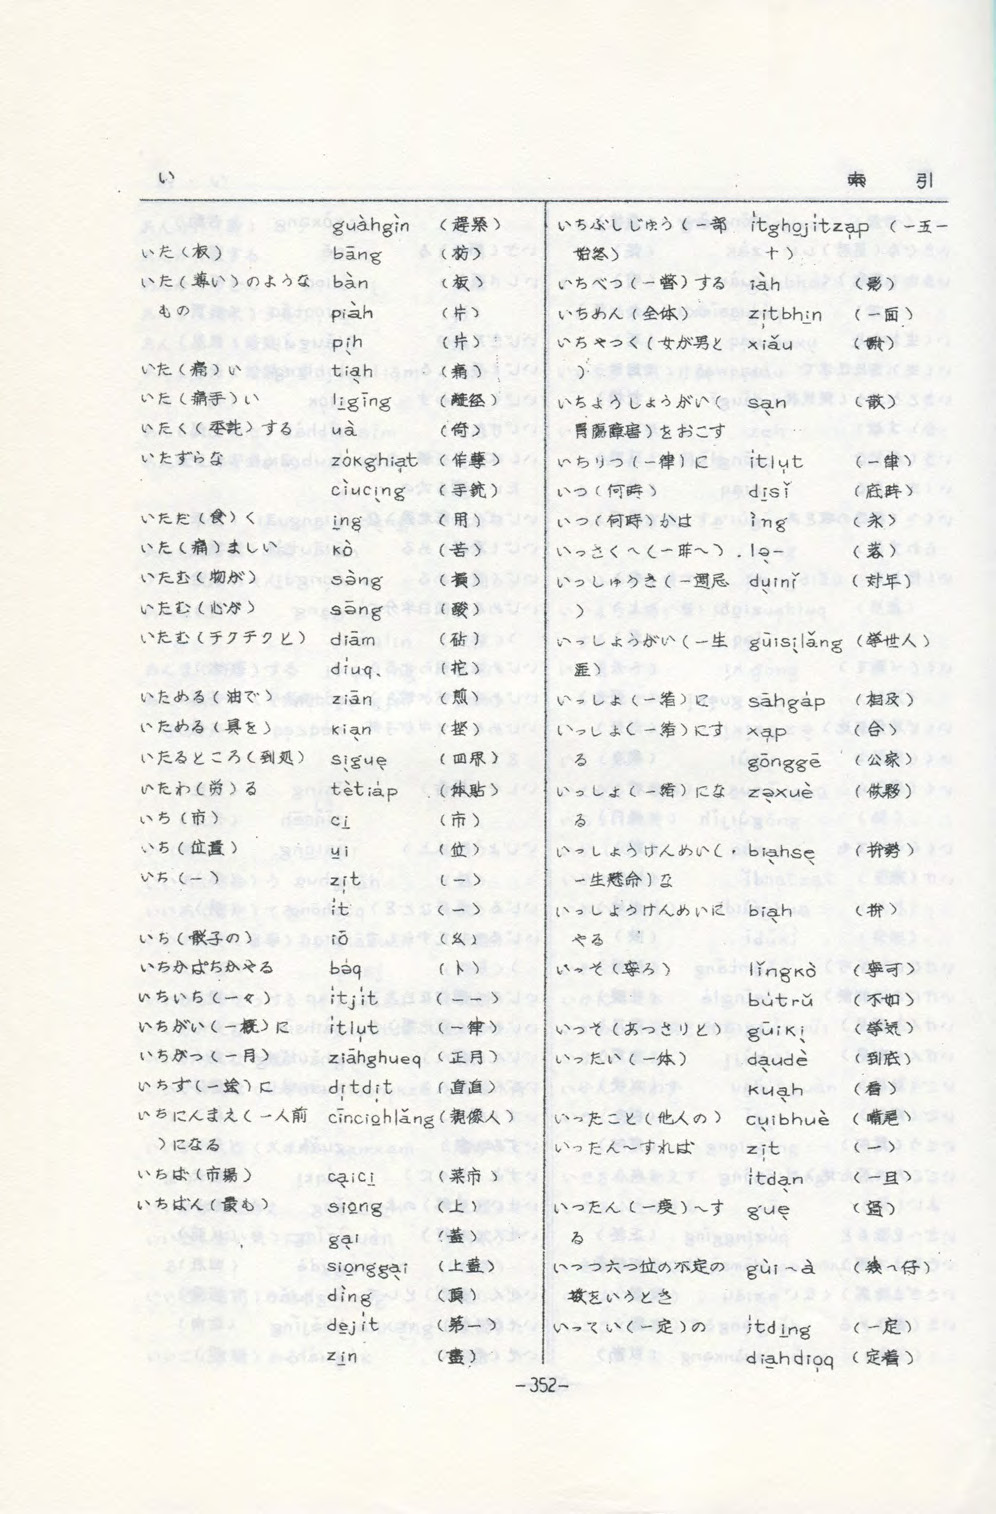 い
索 引
guàhgìn （趕緊）
いた（板） bāng （枋）
いた（薄い）のような bàn （板）
もの piàh （片）
pịh （片）
いた（痛）い tiạh （痛）
いた（痛手）い lịgīng
いたく（委託）する uà （倚）
いたずらな zòkghiat （作孽）
cìucịng （手銃）
いただ（食）く ịng （用）
いた（痛）ましい kò （苦）
いたむ（物が） sèng （損）
いたむ（心が） səng （酸）
いたむ（チクチクと） diām （砧）
diuq
いためる（油で） ziān （煎）
いためる（具を） kiạn
いたるところ（到処） sịguẹ （四界）
いたわ（労）る tètiap （体貼）
いち（市） cị （市）
いち（位置） ụi （位）
いち（一） zịt （一）
it （一）
いち（骰子の） iō （幺）
いちかばちかやる bəq （卜）
いちいち（一々） itjit （一一）
いちがい（一概）に itlụt （一律）
いちがつ（一月） ziāhghueq （正月）
いちず（一途）に dịtdịt （直直）
いちにんまえ（一人前 cīnciohlǎng（親像人）
）になる
いちば（市場） cạicị （菜市）
いちばん（最も） siọng （上）
gại （蓋）
siọnggại （上蓋）
dìng （頂）
dẹjit （第一）
zịn （盡）
いちぶしじゅう（一部 itghojitzạp （一五一
始終） 十）
いちべつ（一瞥）する iàh （影）
いちめん（全体） zịtbhịn （一面）
いちゃつく（女が男と xiǎu
）
いちょうしょうがい（ sạn （散）
胃腸障害）をおこす
いちりつ（一律）に itlụt （一律）
いつ（何時） dịsǐ （底時）
いつ（何時）かは ìng （永）
いっさく～（一昨～） lə- （落）
いっしゅうき（一週忌 duịnǐ （対年）
）
いっしょうがい（一生 gūisịlǎng （挙世人）
涯）
いっしょ（一緒）に sāhgap （相及）
いっしょ（一緒）にす xạp （合）
る gōnggē （公家）
いっしょ（一緒）にな zəxuè （做夥）
る
いっしょうけんめい（ biạhsẹ （拚勢）
一生懸命）な
いっしょうけんめいに biạh （拚）
やる
いっそ（寧ろ） lǐngkò （寧可）
butrǔ （不如）
いっそ（あっさりと） gūikị （挙気）
いったい（一体） dạudè （到底）
kuạh （看）
いったこと（他人の） cụibhuè （嘴尾）
いったん～すれば zịt （一）
itdạn （一旦）
いったん（一度）～す guẹ （過）
る
いつつ六つ位の不定の gùi～à （幾～仔）
数をいうとき
いってい（一定）の itdịng （一定）
diạhdioq （定着）
-352-